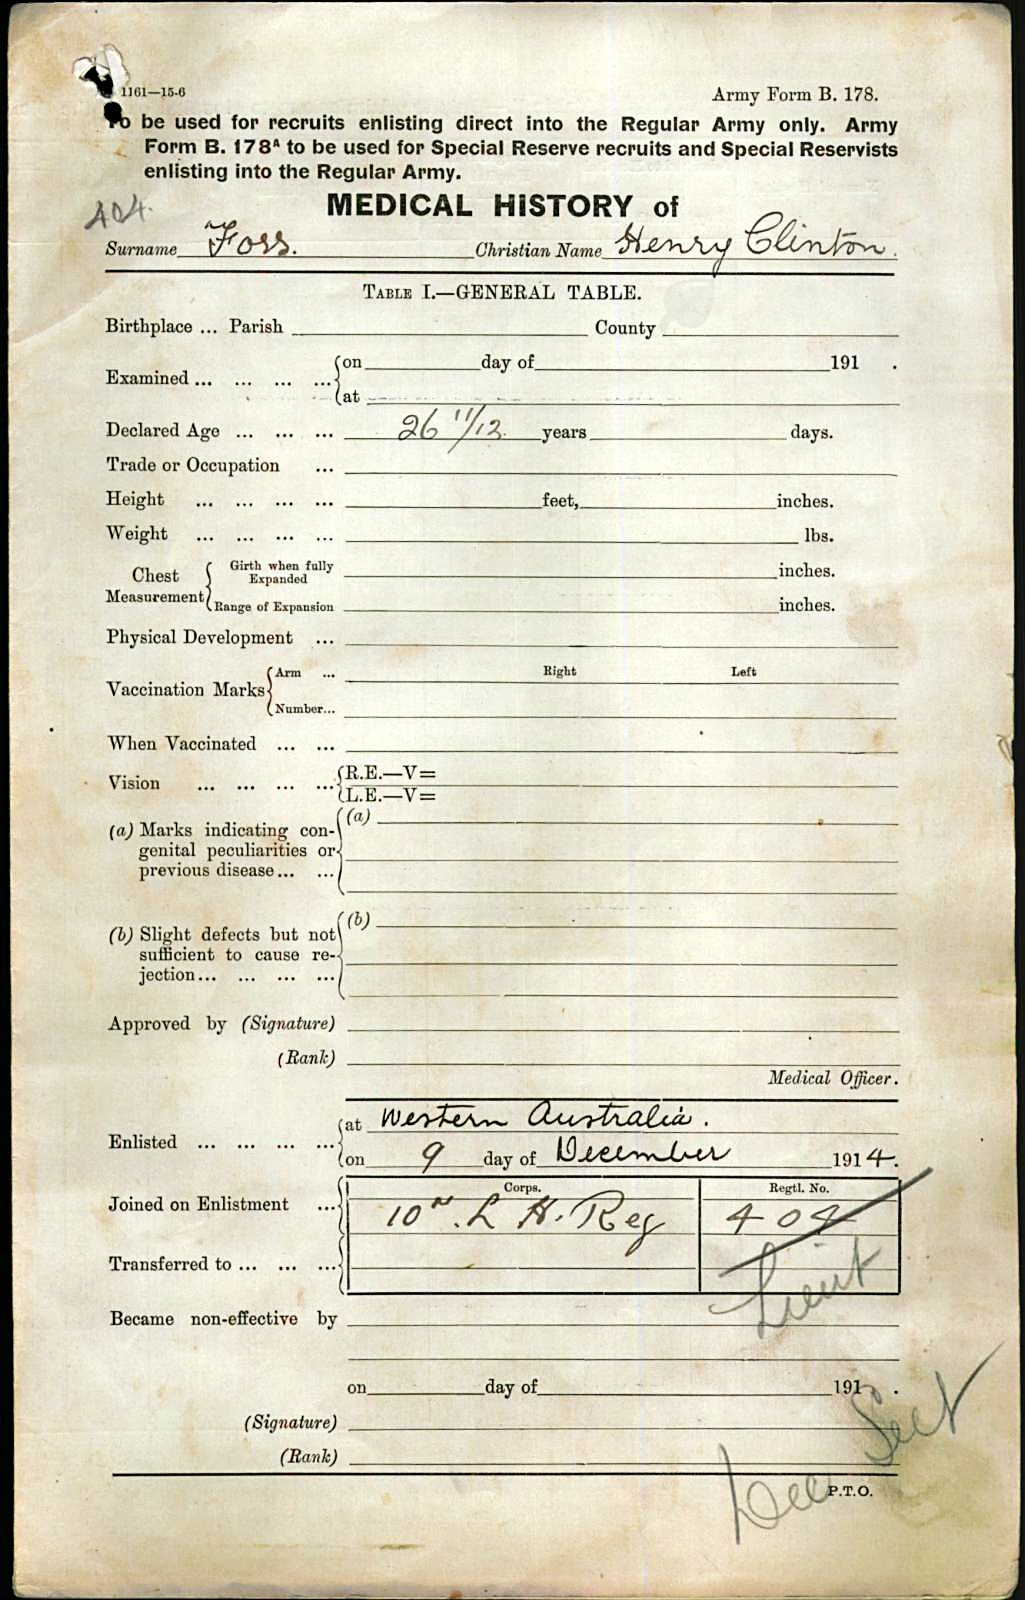 1161—15-6
Army Form B. 178.
To be used for recruits enlisting direct into the Regular Army only. Army
Form B. 178ᴬ to be used for Special Reserve recruits and Special Reservists
enlisting into the Regular Army.
MEDICAL HISTORY of
404.
Surname Foss. Christian Name Henry Clinton.
TABLE I.—GENERAL TABLE.
Birthplace ... Parish County
Examined ... ... ... ... on day of 191 .
at
Declared Age ... ... ... 26 11/12 years days.
Trade or Occupation ...
Height ... ... ... ... feet, inches.
Weight ... ... ... ... lbs.
Chest Measurement Girth when fully Expanded inches.
Range of Expansion inches.
Physical Development ...
Vaccination Marks Arm ... Right Left
Number...
When Vaccinated ... ...
Vision ... ... ... ... R.E.—V=
L.E.—V=
(a) Marks indicating con- (a)
genital peculiarities or
previous disease ... ...
(b) Slight defects but not (b)
sufficient to cause re-
jection ... ... ... ...
Approved by (Signature)
(Rank)
Medical Officer.
Enlisted ... ... ... ... at Western Australia.
on 9 day of December 1914.
Corps. Regtl. No.
Joined on Enlistment ... 10th. L H. Reg 404
Transferred to ... ... ...
Lieut
Became non-effective by
on day of 191 .
(Signature)
(Rank)
P.T.O.